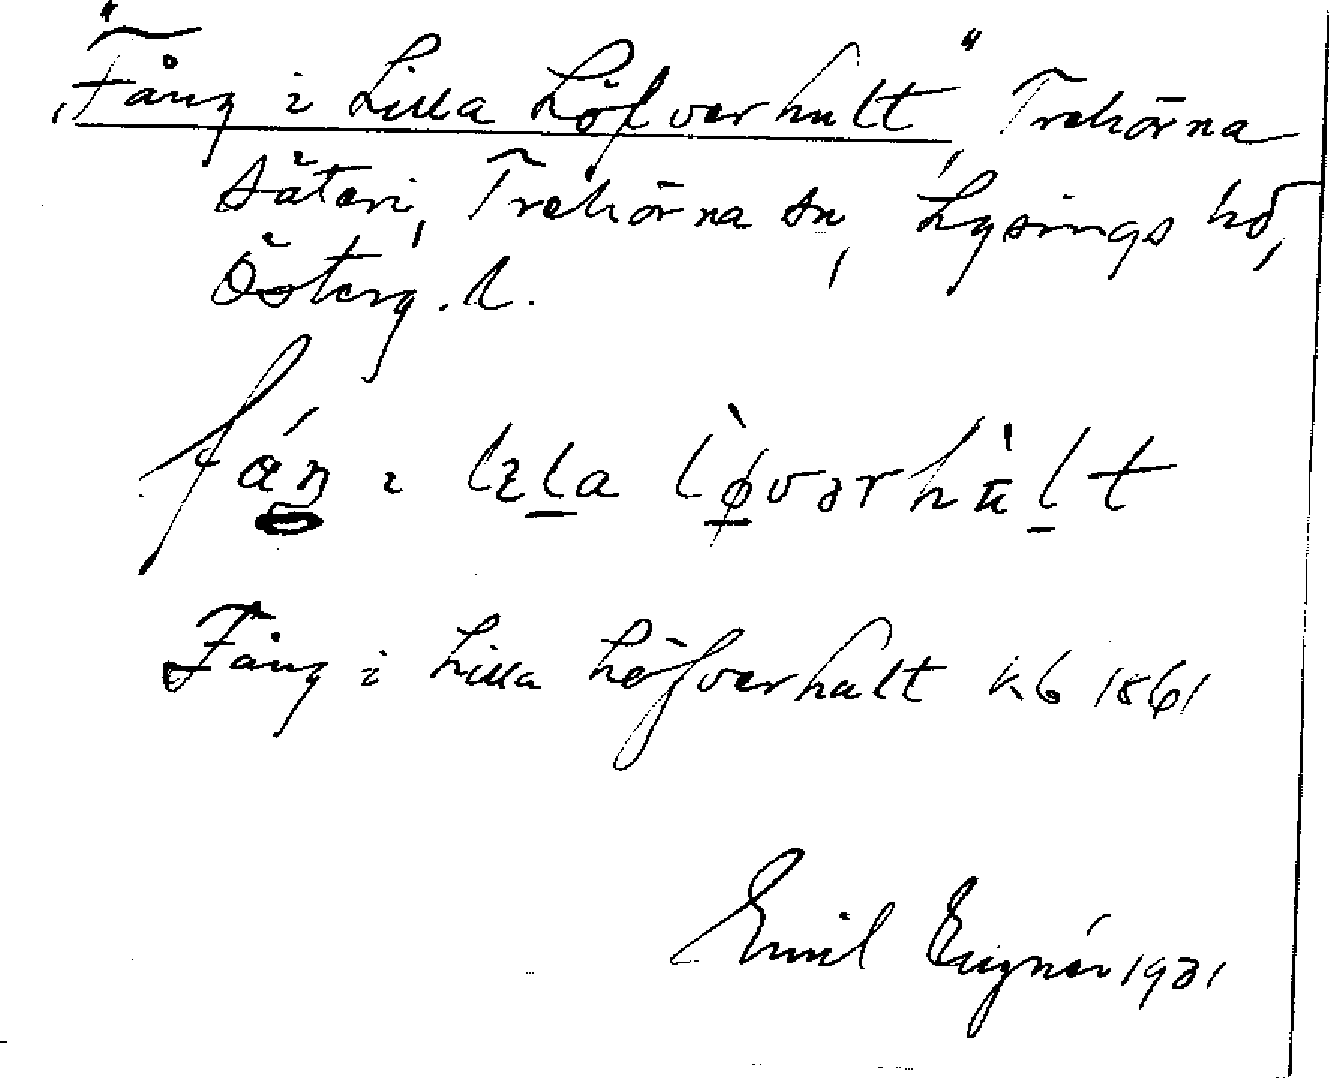 "Fång i Lilla Löfverhult", Trehörna
säteri, Trehörna sn, Lysings hd,
Österg. l.
fáŋ ɩ lɩla lø̀vərhùlt
Fång i Lilla Löfverhult kb 1861
Emil 1931